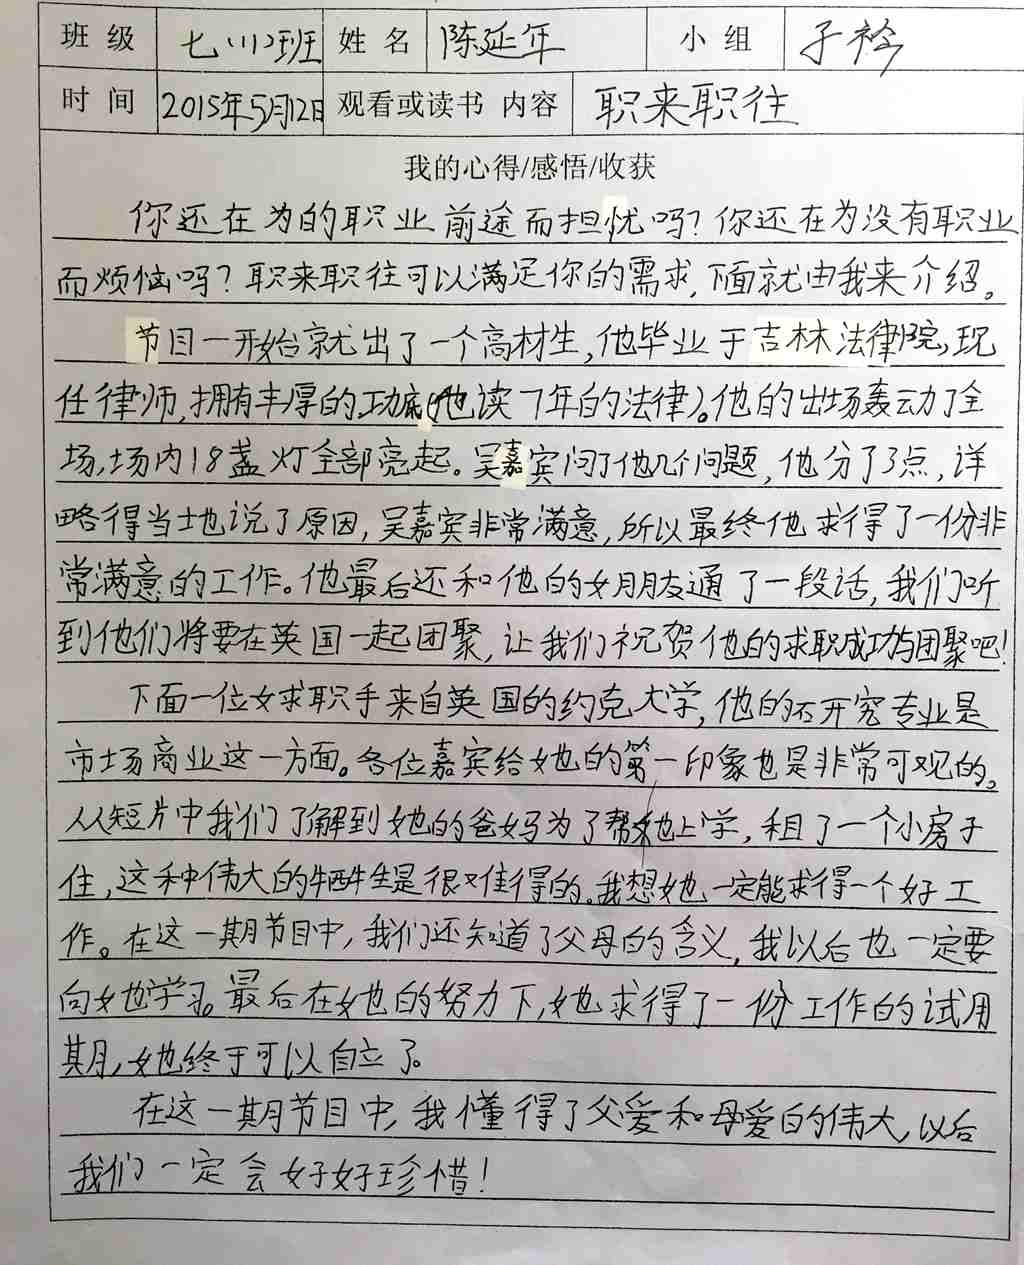 班 级 七(1)班 姓 名 陈延年 小 组 子衿
时 间 2015年5月12日 观看或读书 内容 职来职往
我的心得/感悟/收获
你还在为的职业前途而担忧吗?你还在为没有职业
而烦恼吗?职来职往可以满足你的需求,下面就由我来介绍。
节目一开始就出了一个高材生,他毕业于吉林法律院,现
任律师,拥有丰厚的功底(他读7年的法律)。他的出场轰动了全
场,场内18盏灯全部亮起。吴嘉宾问了他几个问题,他分了3点,详
略得当地说了原因,吴嘉宾非常满意,所以最终他求得了一份非
常满意的工作。他最后还和他的女朋友通了一段话,我们听
到他们将要在英国一起团聚,让我们祝贺他的求职成功与团聚吧!
下面一位女求职手来自英国的约克大学,他的研究专业是
市场商业这一方面。各位嘉宾给她的第一印象也是非常可观的。
从短片中我们了解到她的爸妈为了帮她上学,租了一个小房子
住,这种伟大的牺牲是很难得的。我想她一定能求得一个好工
作。在这一期节目中,我们还知道了父母的含义,我以后也一定要
向她学习。最后在她的努力下,她求得了一份工作的试用
期,她终于可以自立了。
在这一期节目中,我懂得了父爱和母爱的伟大,以后
我们一定会好好珍惜!